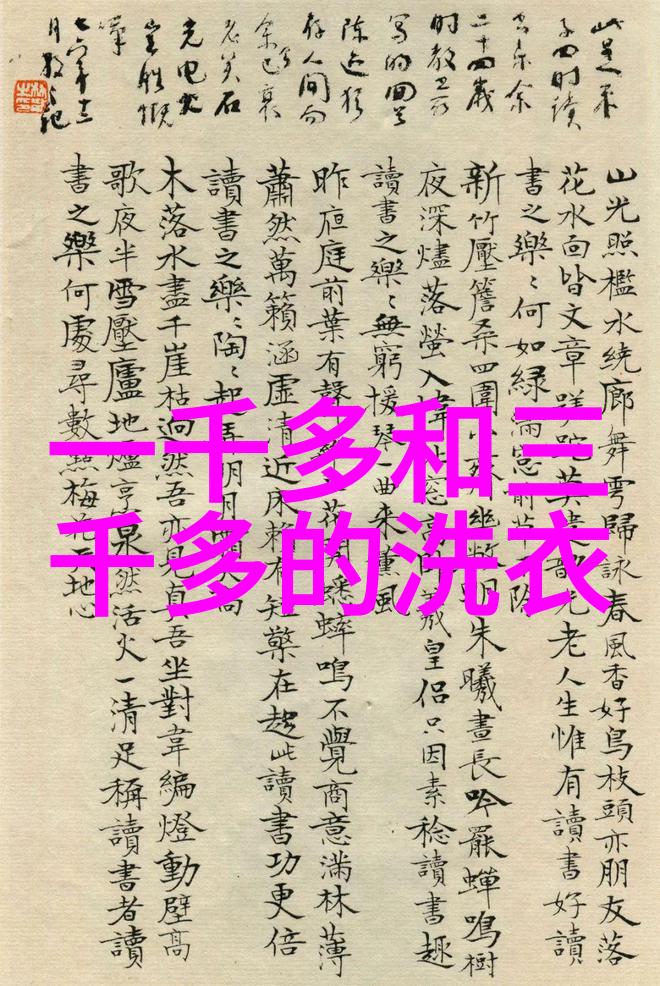 子四時讀
書樂余
二十四歲
陳迹猶
存人間而
余已衰
老矣石
山光照檻水繞廊舞雩歸詠春風香好鳥枝頭亦朋友落
花水面皆文章蹉跎莫遣韶光老人生惟有讀書好讀
書之樂〻何如綠滿窗前草不除
新竹壓簷桑四圍小齋幽敞明朱曦晝長吟罷蟬鳴樹
夜深燼落螢入幃北窗高臥羲皇侶只因素稔讀書趣
讀書之樂〻無窮援琴一曲來薰風
昨夜庭前葉有聲籬豆花開蟋蟀鳴不覺商意滿林薄
蕭然萬籟涵虛清近床賴有短檠在趁此讀書功更倍
讀書之樂〻陶〻起弄明月霜天高
木落水盡千崖枯迥然吾亦見真吾坐對韋編燈動壁高
歌夜半雪壓廬地爐亨泉然活火一清足稱讀書者讀
書之樂何處尋數點梅花天地心
一千多和三
千多的洗衣